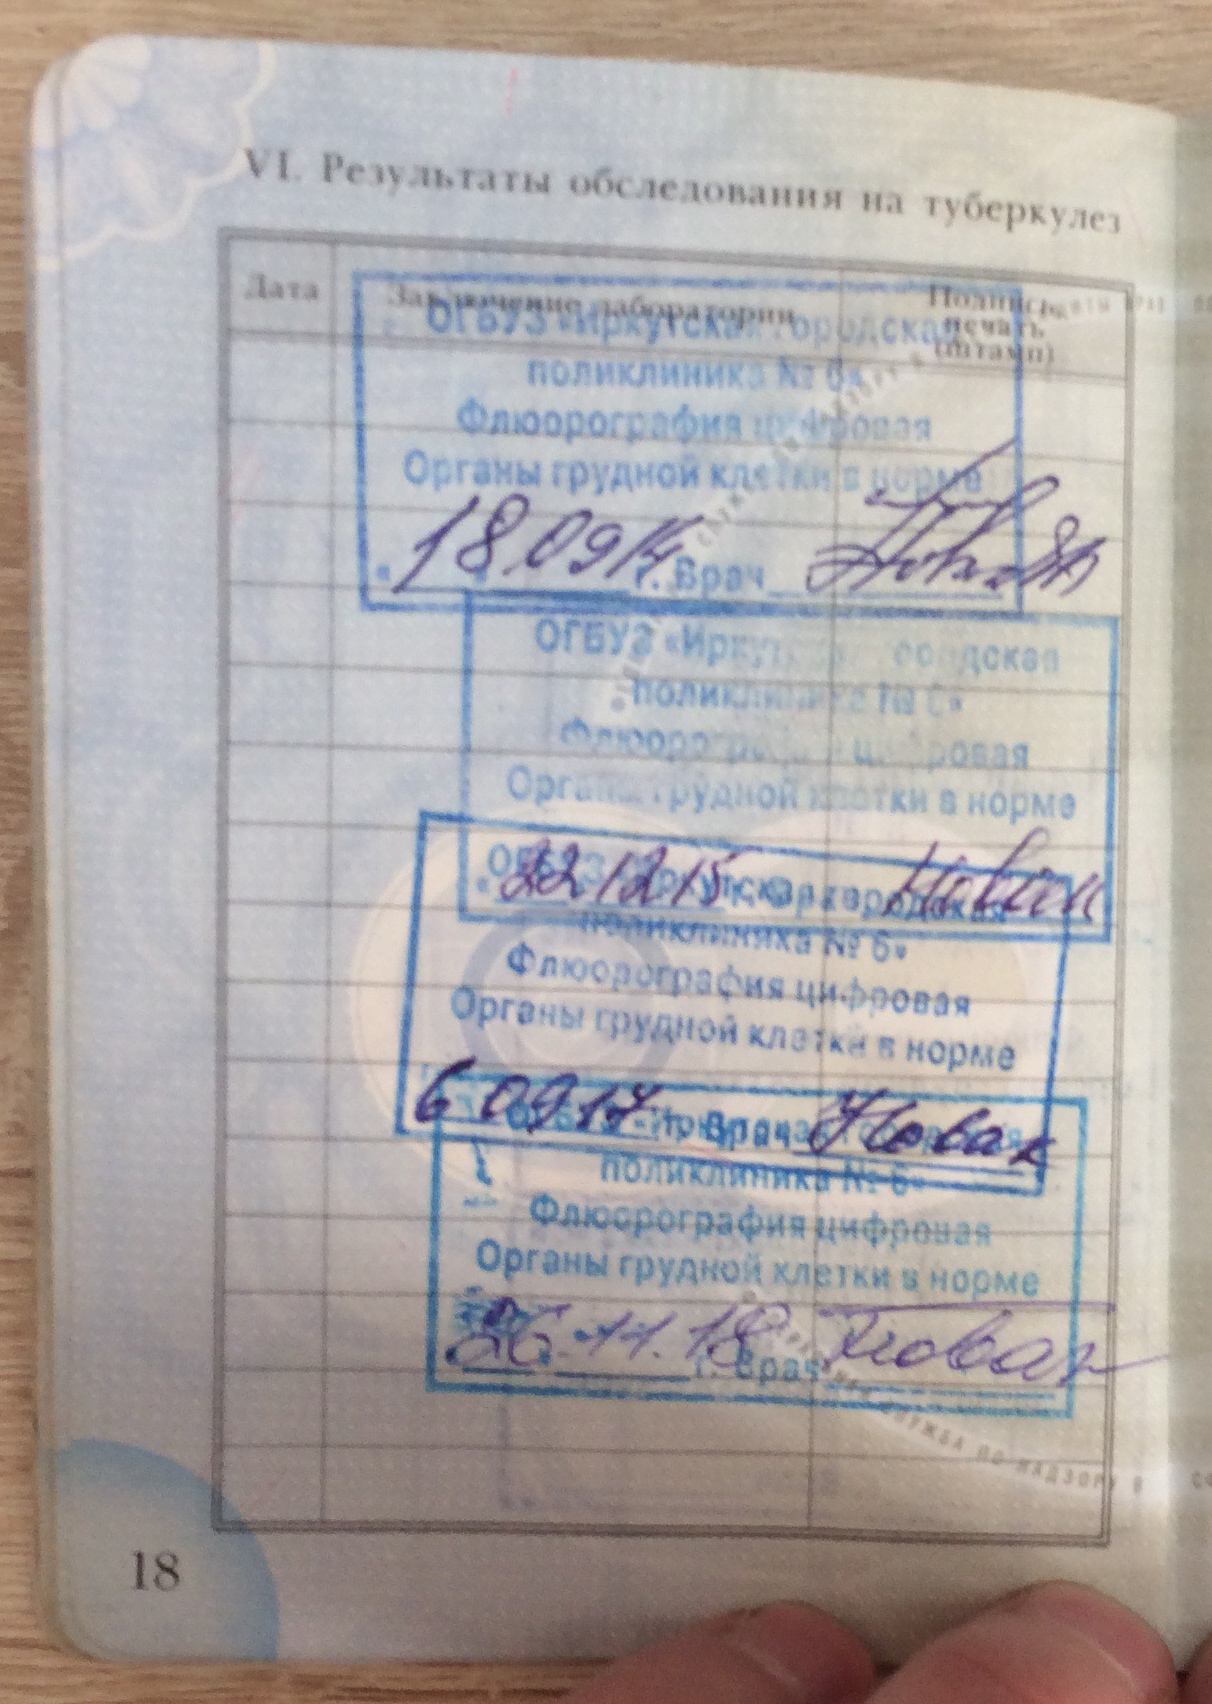 VI. Результаты обследования на туберкулез
Дата
Заключение лаборатории
Подпись, печать (штамп)
ОГБУЗ «Иркутская городская
поликлиника № 6»
Флюорография цифровая
Органы грудной клетки в норме
« 18.09 14 г. Врач
ОГБУЗ «Иркутская городская
поликлиника № 6»
Флюорография цифровая
Органы грудной клетки в норме
« 22 12 15
ОГБУЗ «Иркутская городская
поликлиника № 6»
Флюорография цифровая
Органы грудной клетки в норме
6 09 17 г. Врач Новак
ОГБУЗ «Иркутская городская
поликлиника № 6»
Флюорография цифровая
Органы грудной клетки в норме
26.11.18 г. Врач Новак
СЛУЖБА ПО НАДЗОРУ В
18